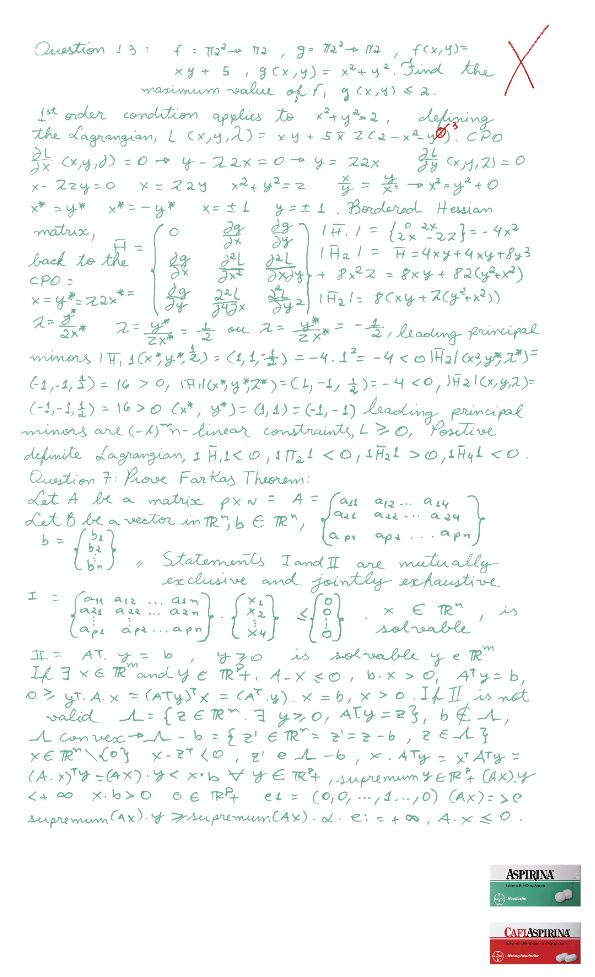 Question 13: f = π2²→ π2, g = π2²→ π2, f(x,y)=
xy + 5, g(x,y) = x² + y². Find the
maximum value of f, g(x,y) ≤ 2.
1st order condition applies to x²+y²=2, defining
the Lagrangian, L (x,y,λ) = xy + 5 + λ(2-x²-y²). CPO
∂L/∂x (x,y,λ) = 0 → y - λ2x = 0 → y = λ2x ∂L/∂y (x,y,λ) = 0
x - 2λy = 0 x = λ2y x²+y² = 2 x/y = y/x → x² = y² + 0
x* = y* x* = -y* x = ±1 y = ±1. Bordered Hessian
matrix,
H̄ = { 0 ∂g/∂x ∂g/∂y
∂g/∂x ∂²L/∂x² ∂²L/∂x∂y
∂g/∂y ∂²L/∂y∂x ∂²L/∂y² }
|H̄1| = {0 2x 2x -2λ} = -4x²
|H̄2| = H̄ = 4xy + 4xy + 8y²λ
+ 8x²λ = 8xy + 8λ(y²+x²)
|H̄2| = 8(xy + λ(y²+x²))
back to the
CPO =
x = y* = λ2x* =
λ = y*/2x* λ = y*/2x* = 1/2 ou λ = y*/2x* = -1/2, leading principal
minors |H̄1|(x*,y*,1/2) = (1,1,-1/2) = -4.1² = -4 < 0 |H̄2|(x*,y*,λ*) =
(-1,-1,1/2) = 16 > 0, |H̄1|(x*,y*,λ*) = (1,-1,1/2) = -4 < 0, |H̄2|(x,y,λ) =
(-1,-1,1/2) = 16 > 0 (x*, y*) = (1,1) = (-1,-1) leading principal
minors are (-1)ᵐn-linear constraints, L ≥ 0, Positive
definite Lagrangian, |H̄1| < 0, |H̄2| < 0, |H̄2| > 0, |H̄4| < 0.
Question 7: Prove Farkas Theorem:
Let A be a matrix p×n = A = { a11 a12 ... a14
a21 a22 ... a24
ap1 ap2 ... apn }
Let B be a vector in ℝⁿ, b ∈ ℝⁿ,
b = { b1 b2 ⋮ bn } „ Statements I and II are mutually
exclusive and jointly exhaustive
I = { a11 a12 ... a1n
a21 a22 ... a2n
ap1 ap2 ... apn } . { x1 x2 ⋮ x4 } ≤ { 0 0 ⋮ 0 } . x ∈ ℝⁿ, is
solveable
II = Aᵀ. y = b, y ≥ 0 is solvable y ∈ ℝᵐ
If ∃ x ∈ ℝᵐ and y ∈ ℝᵖ+, A.x ≤ 0, b.x > 0, Aᵀy = b,
0 ≥ yᵀ.A.x = (Aᵀy)ᵀx = (Aᵀ.y).x = b, x > 0. If II is not
valid Λ = {z ∈ ℝⁿ. ∃ y ≥ 0, Aᵀy = z}, b ∉ Λ,
Λ convex → Λ - b = {z' ∈ ℝⁿ = z' = z - b, z ∈ Λ}
x ∈ ℝⁿ\{0} x-zᵀ < 0, z' ∈ Λ - b, x.Aᵀy = xᵀAᵀy =
(A.x)ᵀy = (Ax).y < x.b ∀ y ∈ ℝᵖ+, supremum y ∈ ℝᵖ+ (Ax).y
< +∞ x.b > 0 0 ∈ ℝᵖ+ e1 = (0,0,...,1...,0) (Ax) = > 0
supremum (Ax).y ≥ supremum (Ax).α.ei = +∞, A.x ≤ 0.
ASPIRINA
CAFIASPIRINA